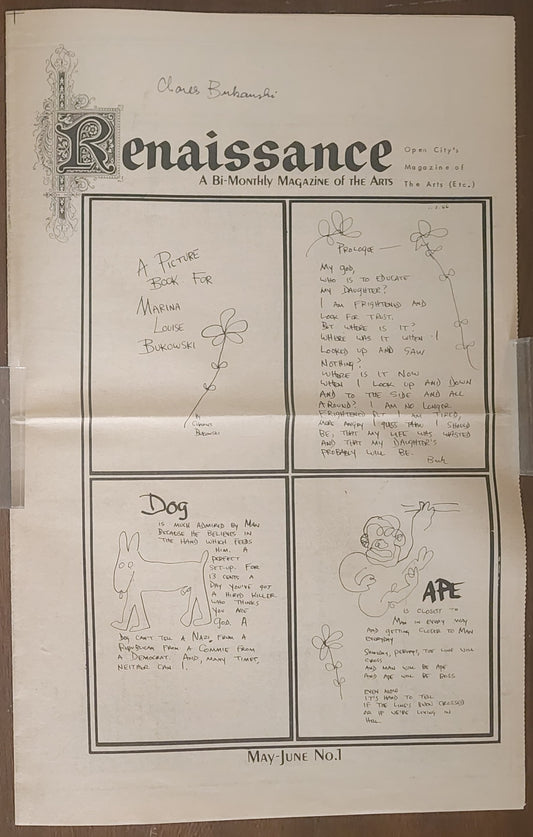 Charles Bukowski
Renaissance
A Bi-Monthly Magazine of the Arts
Open City's
Magazine of
The Arts (Etc.)
A PICTURE
BOOK FOR
MARINA
LOUISE
BUKOWSKI
BY
CHARLES
BUKOWSKI
PROLOGUE —
MY GOD,
WHO IS TO EDUCATE
MY DAUGHTER?
I AM FRIGHTENED AND
LOOK FOR TRUST.
BUT WHERE IS IT?
WHERE WAS IT WHEN I
LOOKED UP AND SAW
NOTHING?
WHERE IS IT NOW
WHEN I LOOK UP AND DOWN
AND TO THE SIDE AND ALL
AROUND? I AM NO LONGER
FRIGHTENED BUT I AM TIRED,
MORE ANGRY I GUESS THAN I SHOULD
BE, THAT MY LIFE WAS WASTED
AND THAT MY DAUGHTER'S
PROBABLY WILL BE.
Buk
DOG
IS MUCH ADMIRED BY MAN
BECAUSE HE BELIEVES IN
THE HAND WHICH FEEDS
HIM. A
PERFECT
SET-UP. FOR
13 CENTS A
DAY YOU'VE GOT
A HIRED KILLER
WHO THINKS
YOU ARE
GOD. A
DOG CAN'T TELL A NAZI FROM A
REPUBLICAN FROM A COMMIE FROM
A DEMOCRAT. AND, MANY TIMES,
NEITHER CAN I.
APE
IS CLOSEST TO
MAN IN EVERY WAY
AND GETTING CLOSER TO MAN
EVERYDAY
SOMEDAY, PERHAPS, THE LINE WILL
CROSS
AND MAN WILL BE APE
AND APE WILL BE BOSS.
EVEN NOW
IT'S HARD TO TELL
IF THE LINE'S EVEN CROSSED
OR IF WE'RE LIVING IN
HELL.
May-June No.1